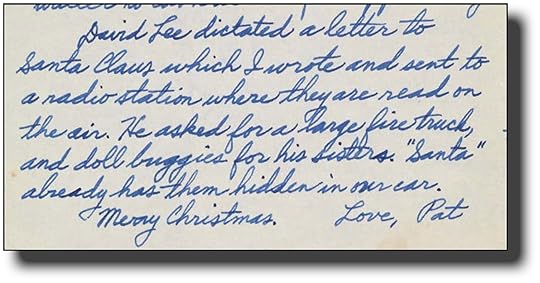 David Lee dictated a letter to
Santa Claus which I wrote and sent to
a radio station where they are read on
the air. He asked for a large fire truck,
and doll buggies for his sisters. "Santa"
already has them hidden in our car.
Merry Christmas. Love, Pat